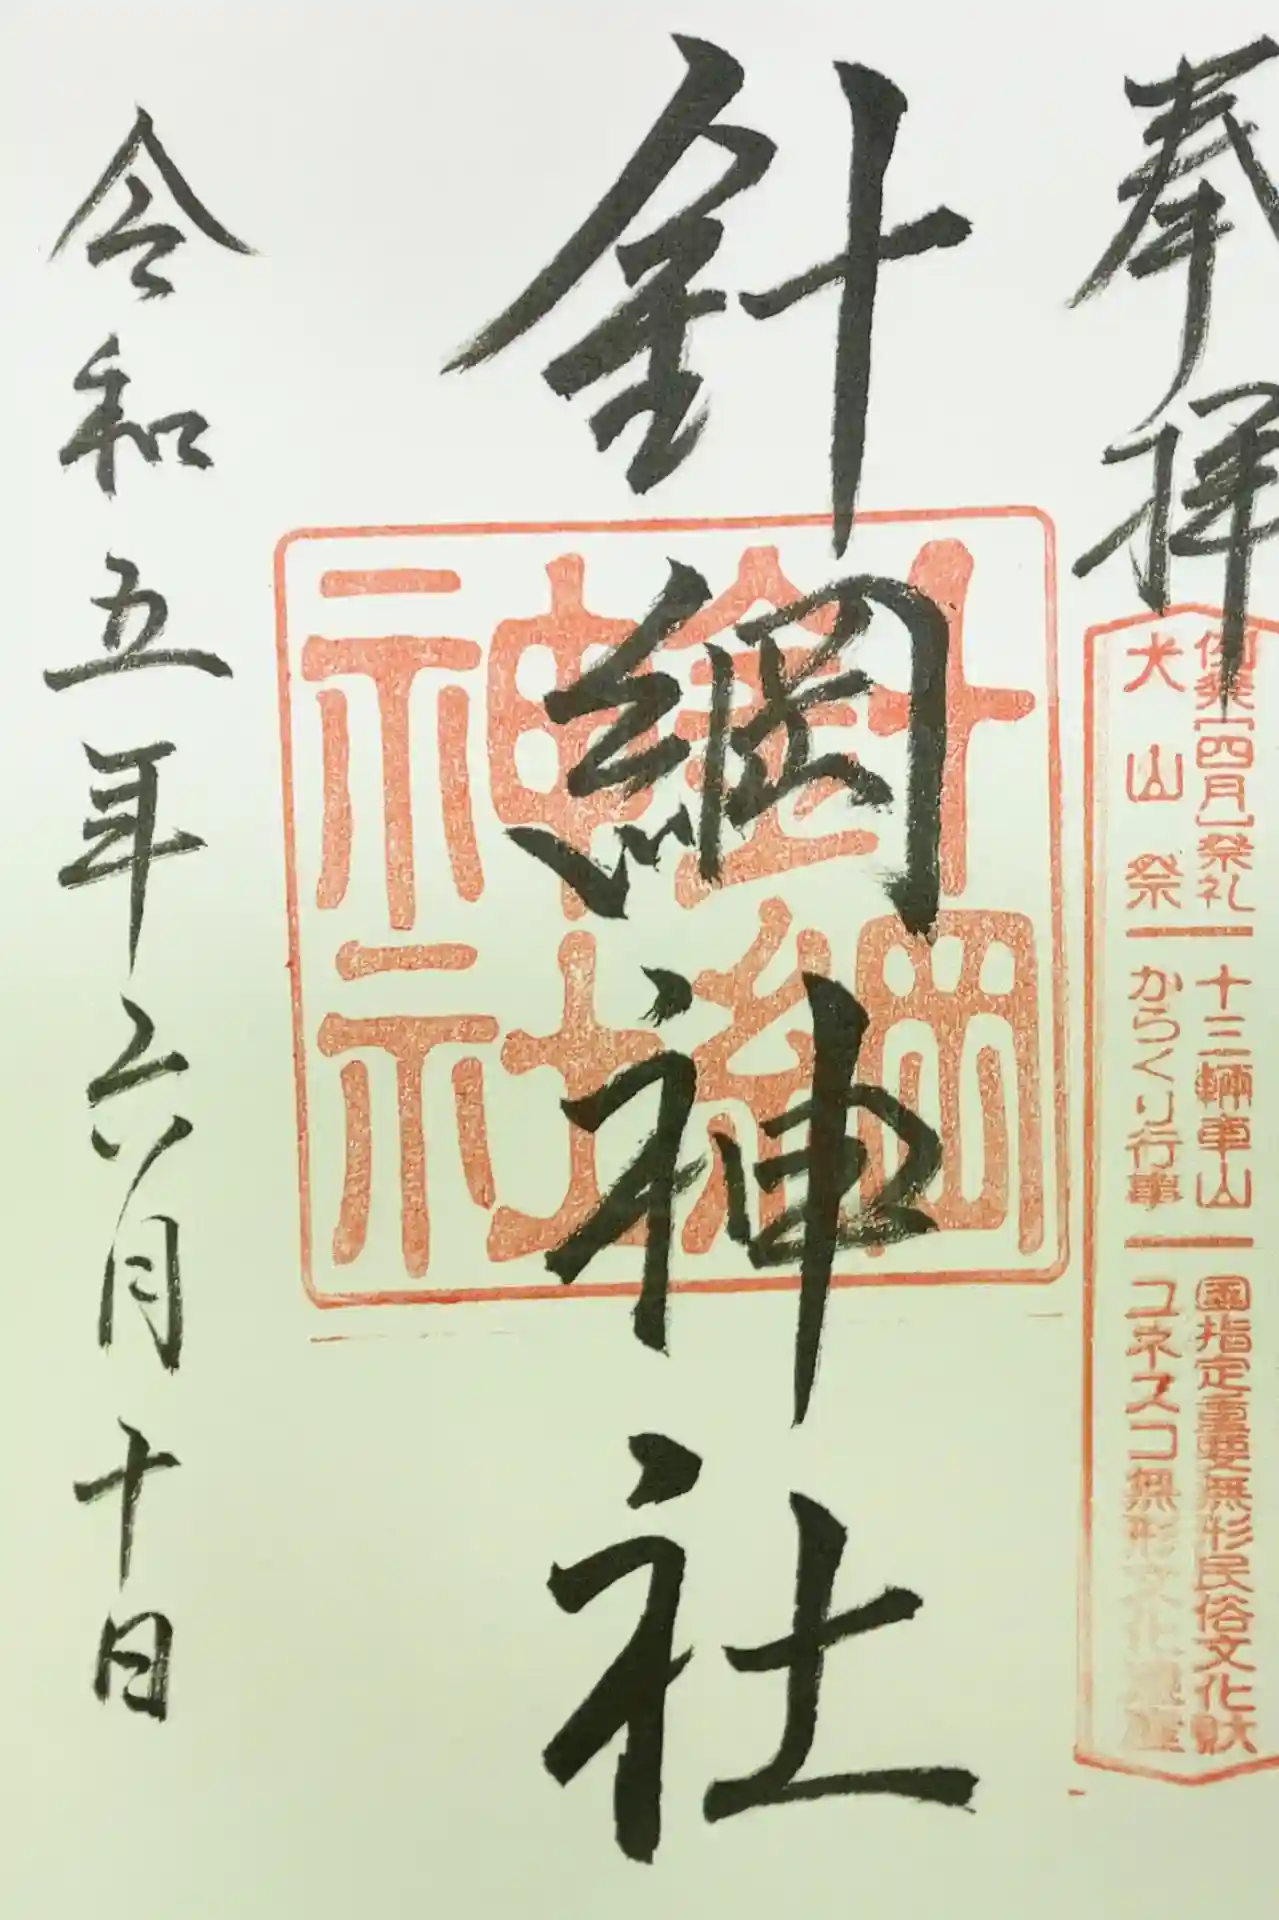 奉拝
例祭[四月]祭礼 十三輛車山 国指定重要無形民俗文化財
犬山祭 からくり行事 ユネスコ無形文化遺産
針綱神社
針綱
神社
令和五年六月十日